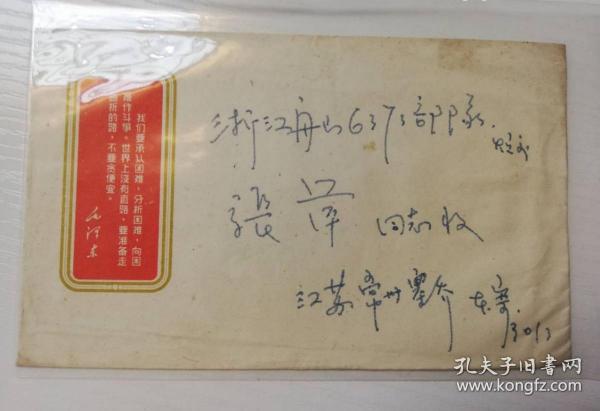 我们要承认困难，分析困难，向困
难作斗争。世界上没有直路，要准备走
曲折的路，不要贪便宜。
毛泽东
浙江舟山6373部队
張萍 同志收
江苏常州
孔夫子旧书网
www.kongfz.com